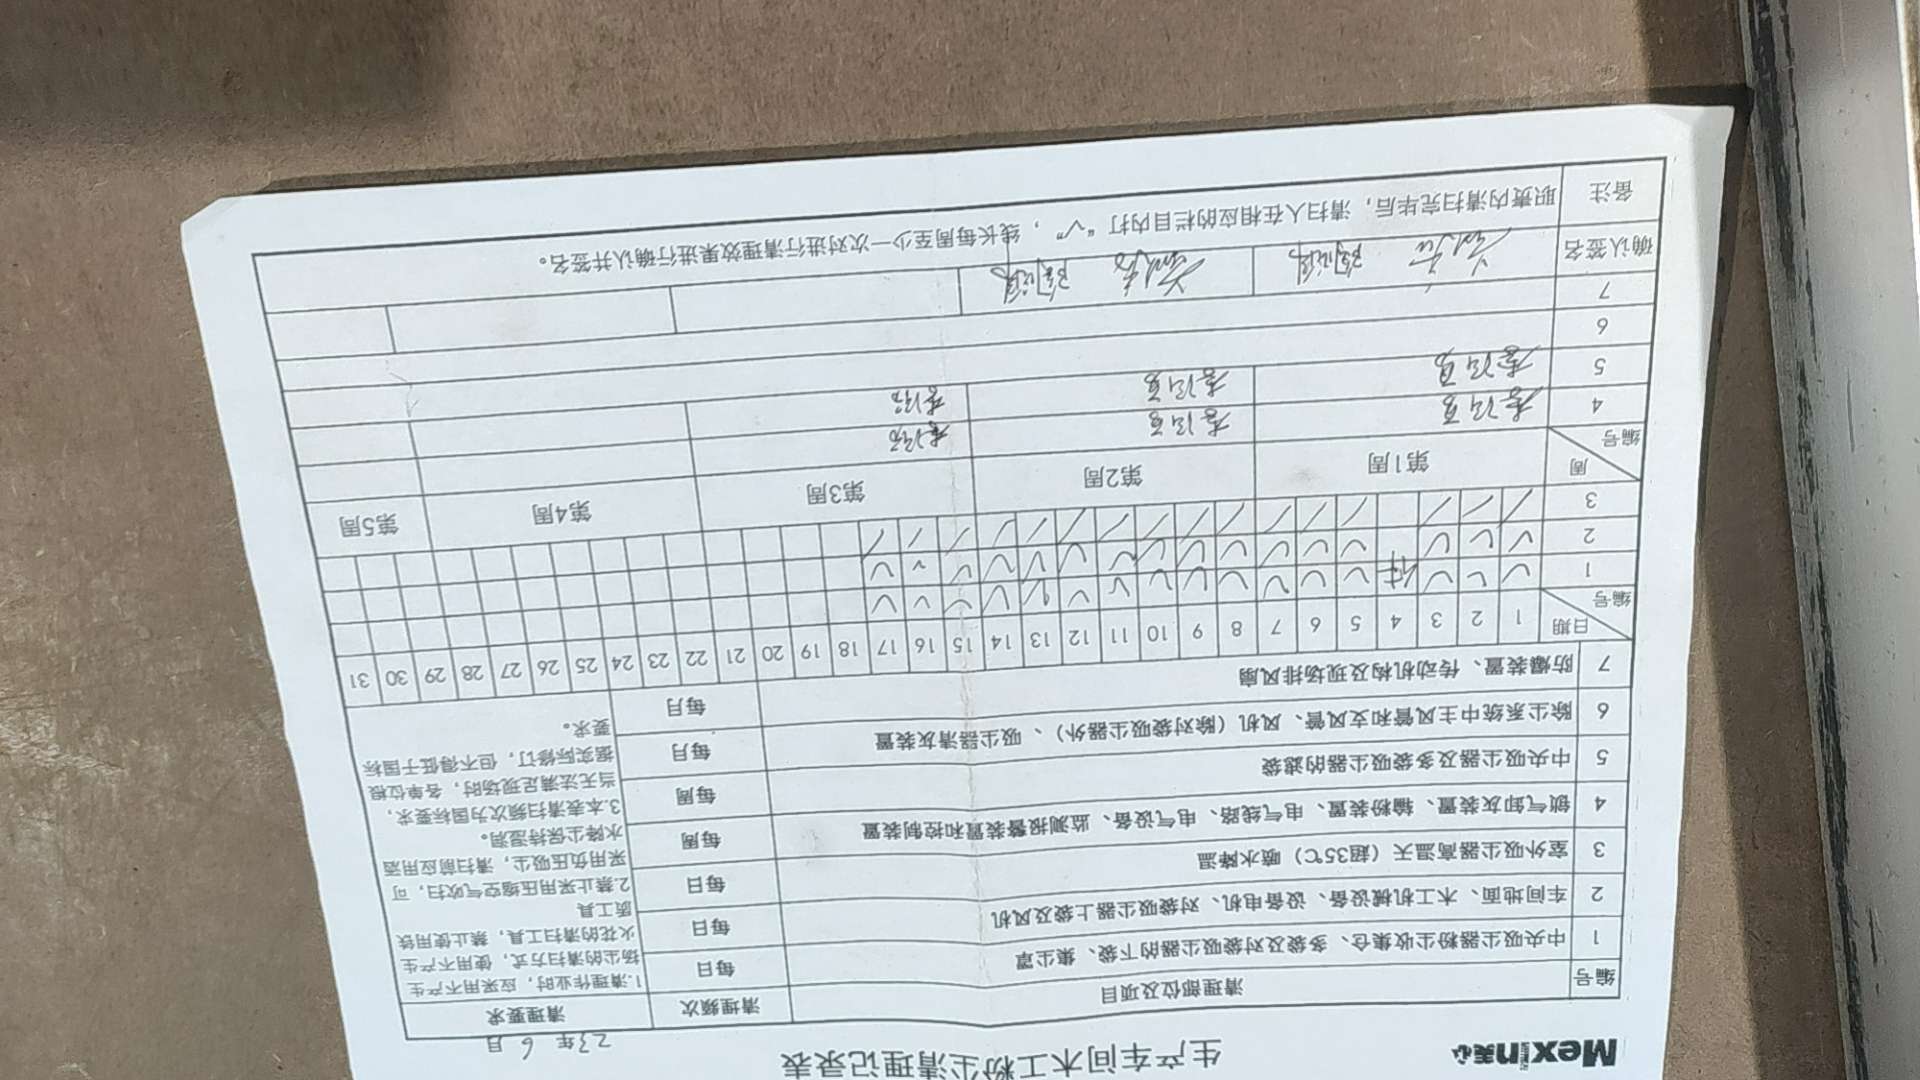 Mexin美心
生产车间木工粉尘清理记录表
23年 6月
编号 清理部位及项目 清理频次 清理要求
1 中央吸尘器粉尘收集仓、多袋及对袋吸尘器的下袋、集尘罩 每日
2 车间地面、木工机械设备、设备电机、对袋吸尘器上袋及风机 每日
3 室外吸尘器高温天（超35℃）喷水降温 每日
4 锁气卸灰装置、输粉装置、电气线路、电气设备、监测报警装置和控制装置 每周
5 中央吸尘器及多袋吸尘器的滤袋 每周
6 除尘系统中主风管和支风管、风机（除对袋吸尘器外）、吸尘器清灰装置 每月
7 防爆装置、传动机构及现场排风扇 每月
1.清理作业时，应采用不产生
扬尘的清扫方式，使用不产生
火花的清扫工具，禁止使用铁
质工具
2.禁止采用压缩空气吹扫，可
采用负压吸尘，清扫前应用洒
水降尘保持湿润。
3.本表清扫频次为国标要求，
当无法满足现场时，各单位根
据实际修订，但不得低于国标
要求。
编号 日期 1 2 3 4 5 6 7 8 9 10 11 12 13 14 15 16 17 18 19 20 21 22 23 24 25 26 27 28 29 30 31
1 ✓ ✓ ✓ 休 ✓ ✓ ✓ ✓ ✓ ✓ ✓ ✓ ✓ ✓ ✓ ✓ ✓
2 ✓ ✓ ✓ ✓ ✓ ✓ ✓ ✓ ✓ ✓ ✓ ✓ ✓ ✓ ✓ ✓
3 / / / / / / / / / / / / / / / /
编号 周 第1周 第2周 第3周 第4周 第5周
4
5
6
7
确认签名
备注 职责内清扫完毕后，清扫人在相应的栏目内打“✓”，线长每周至少一次对进行清理效果进行确认并签名。